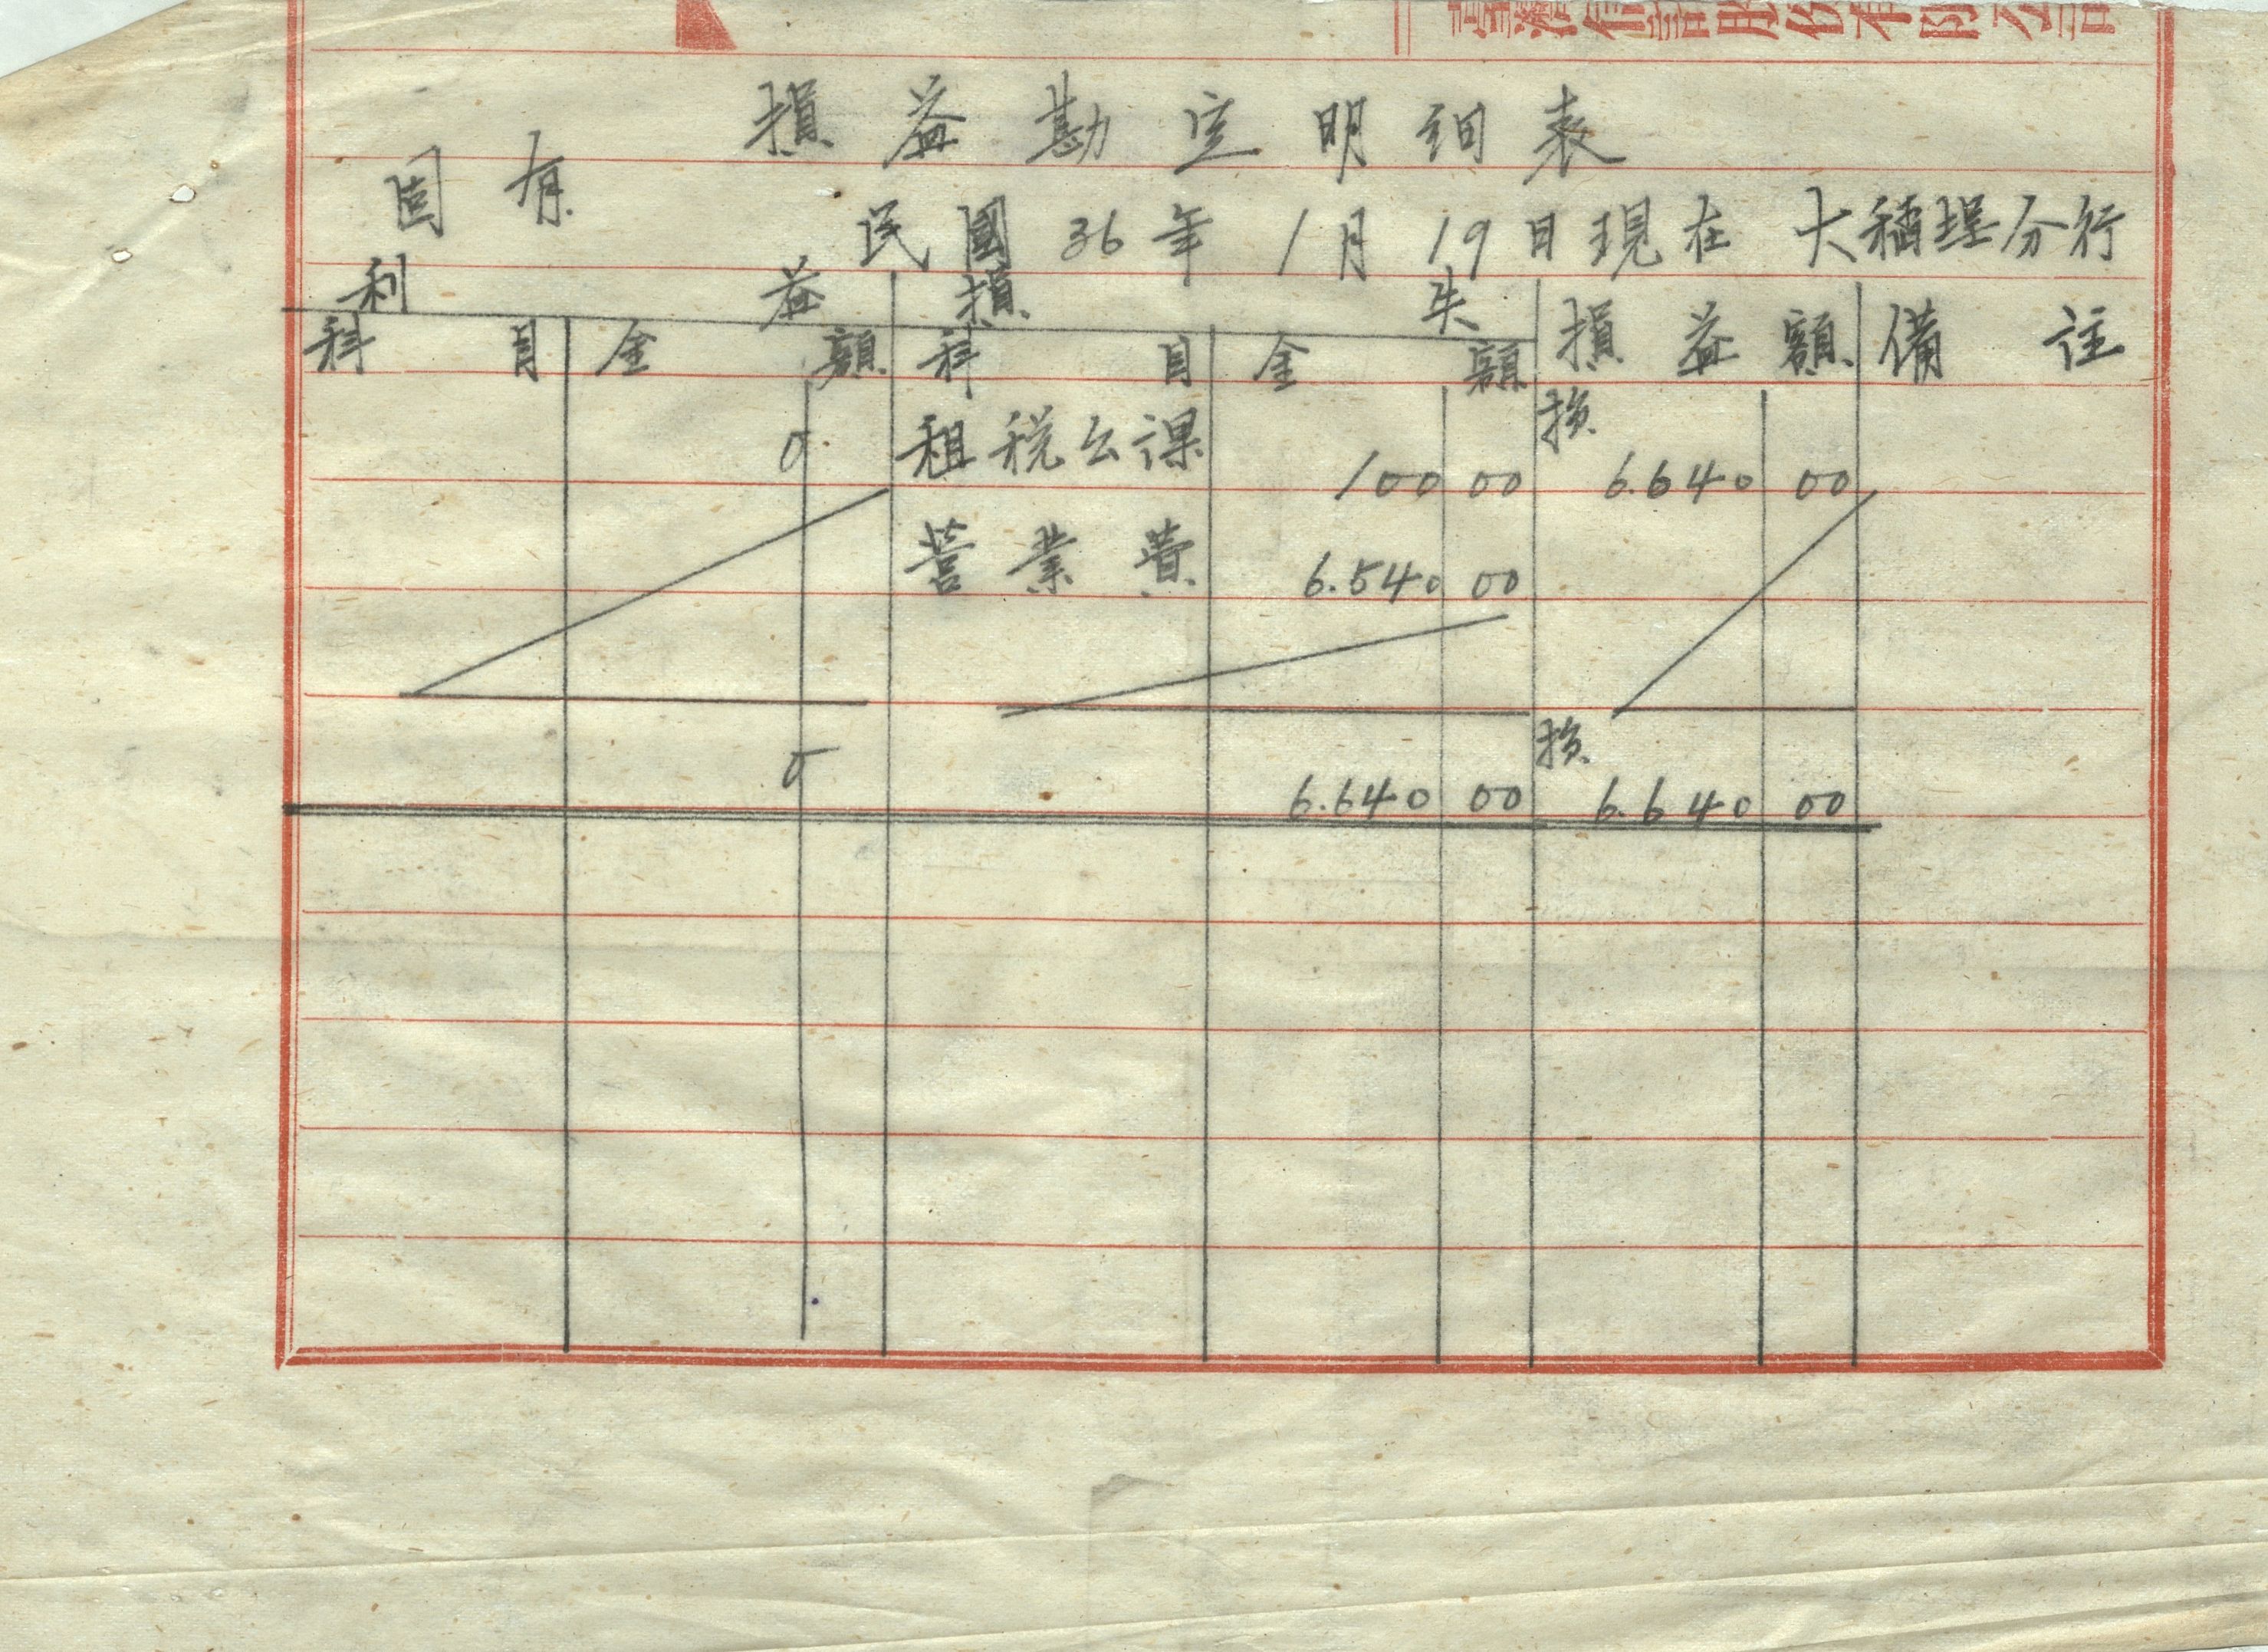 臺灣信託股份有限公司
損益勘定明細表
固有
民國36年1月19日現在 大稻埕分行
利益 損失 損益額 備註
科目 金額 科目 金額
0 租税公課 100 00 損 6.640 00
营業費 6.540 00
0 6.640 00 損 6.640 00